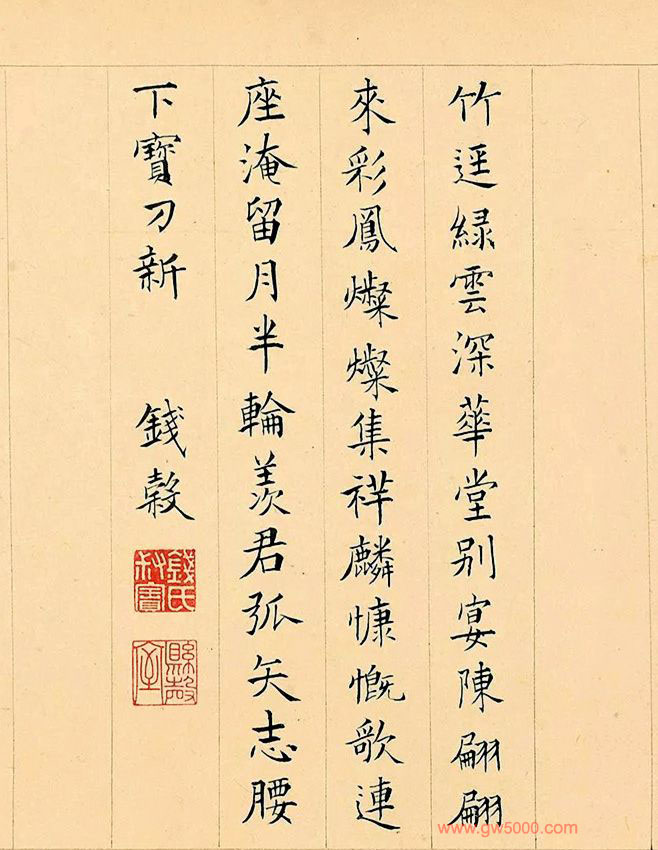 竹逕緑雲深華堂别宴陳翩翩
來彩鳳燦燦集祥麟慷慨歌連
座淹留月半輪羡君弧矢志腰
下寶刀新　錢榖
錢氏叔寶
縣磬室
www.gw5000.com